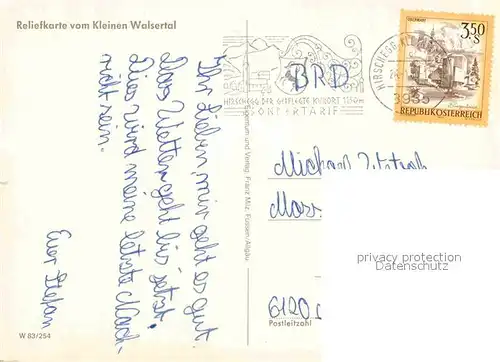 Reliefkarte vom Kleinen Walsertal
Ihr Lieben, mir geht es gut
Das Wetter geht bis jetzt.
Dies wird meine letzte Nach-
richt sein.
Euer Stefan
W 83/254
und Verlag Franz Milz, Füssen/Allgäu
BRD
HIRSCHEGG DER GEPFLEGTE KURORT 1150m
SONDERTARIF
HIRSCHEGG
3,50
S
REPUBLIK ÖSTERREICH
Michael
6120
Postleitzahl
privacy protection
Datenschutz